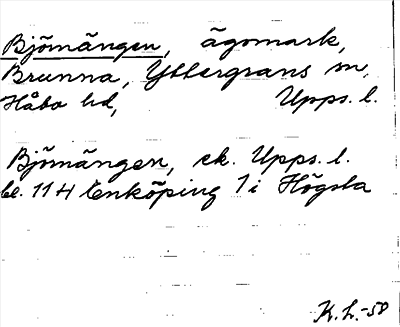 Björnängen, ägomark,
Brunna, Yttergrans sn,
Håbo hd, Upps. l.
Björnängen, ek. Upps. l.
bl. 114 Enköping 7 i Högsta
K.L.-58